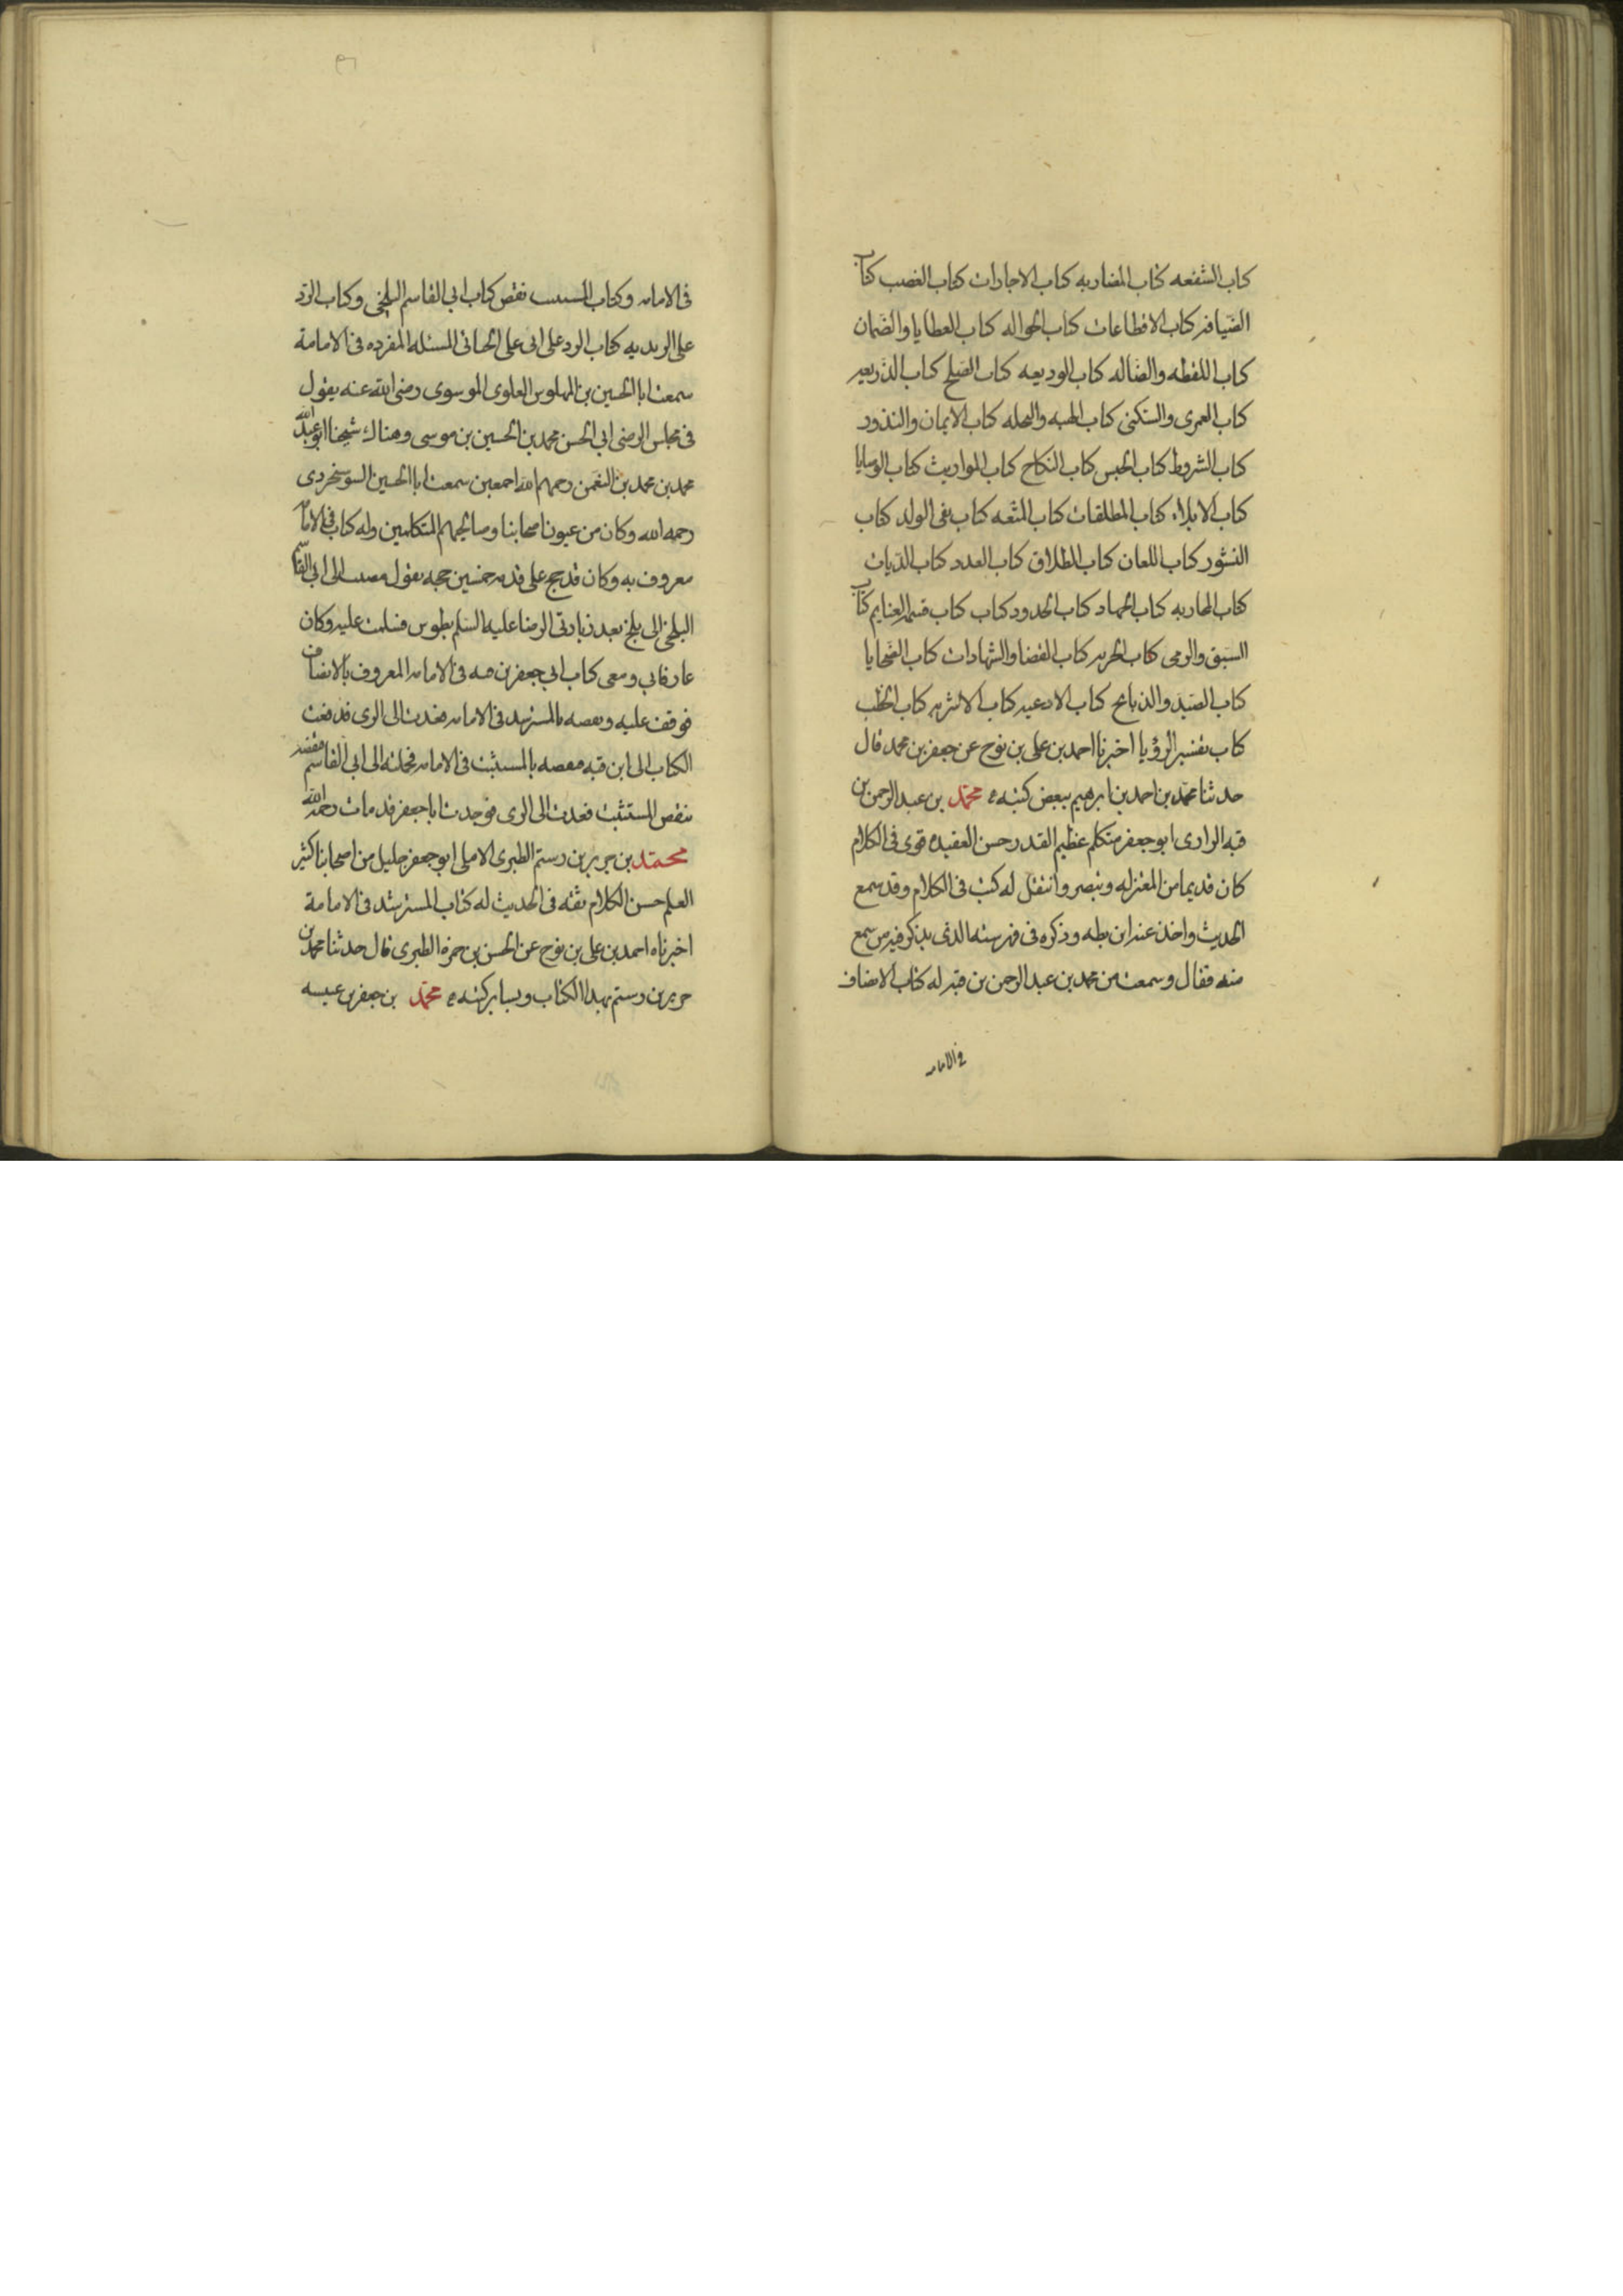 كتاب الشفعه كتاب المضاربه كتاب الاجارات كتاب الغصب كتاب
الضيافه كتاب الاقطاعات كتاب الحواله كتاب العطايا والضمان
كتاب اللقطه والضاله كتاب الوديعه كتاب الصلح كتاب الذريعه
كتاب العمرى والسكنى كتاب الهبه والنحله كتاب الايمان والنذور
كتاب الشروط كتاب الحبس كتاب النكاح كتاب المواريث كتاب الوصايا
كتاب الايلاء كتاب المطلقات كتاب المتعه كتاب نفى الولد كتاب
النشوز كتاب اللعان كتاب الطلاق كتاب العدد كتاب الديات
كتاب المحاربه كتاب الجهاد كتاب الحدود كتاب كتاب قسم الغنايم كتاب
السبق والرمى كتاب الجزيه كتاب القضا والشهادات كتاب الضحايا
كتاب الصيد والذبايح كتاب الادعيه كتاب الاشربه كتاب الخطب
كتاب تفسير الرؤيا اخبرنا احمد بن على بن نوح عن جعفر بن محمد قال
حدثنا محمد بن احمد بن ابرهيم ببعض كتبه محمد بن عبد الرحمن بن
قبه الرازى ابو جعفر متكلم عظيم القدر حسن العقيده قوى فى الكلام
كان قديما من المعتزله وتبصر وانتقل له كتب فى الكلام وقد سمع
الحديث واخذ عنه ابن بطه وذكره فى فهرسته الذى يذكر فيه من سمع
منه فقال وسمعت من محمد بن عبد الرحمن بن قبه له كتاب الانصاف
فى الامامه
فى الامامه وكتاب المستثبت نقض كتاب ابى القاسم البلخى وكتاب الرد
على الزيديه كتاب الرد على ابى على الجبائى المسئله المفرده فى الامامة
سمعت ابا الحسين بن المهلوس العلوى الموسوى رضى الله عنه يقول
فى مجلس الرضى ابى الحسن محمد بن الحسين بن موسى وهناك شيخنا ابو عبد الله
محمد بن محمد بن النعمن رحمهم الله اجمعين سمعت ابا الحسين السوسنجردى
رحمه الله وكان من عيون اصحابنا وصالحيهم المتكلمين وله كتاب فى الامامه
معروف به وكان قد حج على قدميه خمسين حجه يقول مضيت الى ابى القاسم
البلخى الى بلخ بعد زيارتى الرضا عليه السلم بطوس فسلمت عليه وكان
عارفا بى ومعى كتاب ابى جعفر بن قبه فى الامامه المعروف بالانصاف
فوقف عليه ونقضه بالمسترشد فى الامامه فعدت الى الرى فدفعت
الكتاب الى ابن قبه فنقضه بالمستثبت فى الامامه فحملته الى ابى القاسم فنقضه
بنقض المستثبت فعدت الى الرى فوجدت ابا جعفر قد مات رحمه الله
محمد بن جرير بن رستم الطبرى الاملى ابو جعفر جليل من اصحابنا كثير
العلم حسن الكلام ثقه فى الحديث له كتاب المسترشد فى الامامة
اخبرناه احمد بن على بن نوح عن الحسن بن حمزه الطبرى قال حدثنا محمد بن
جرير بن رستم بهذا الكتاب وبساير كتبه محمد بن جعفر بن عبسه